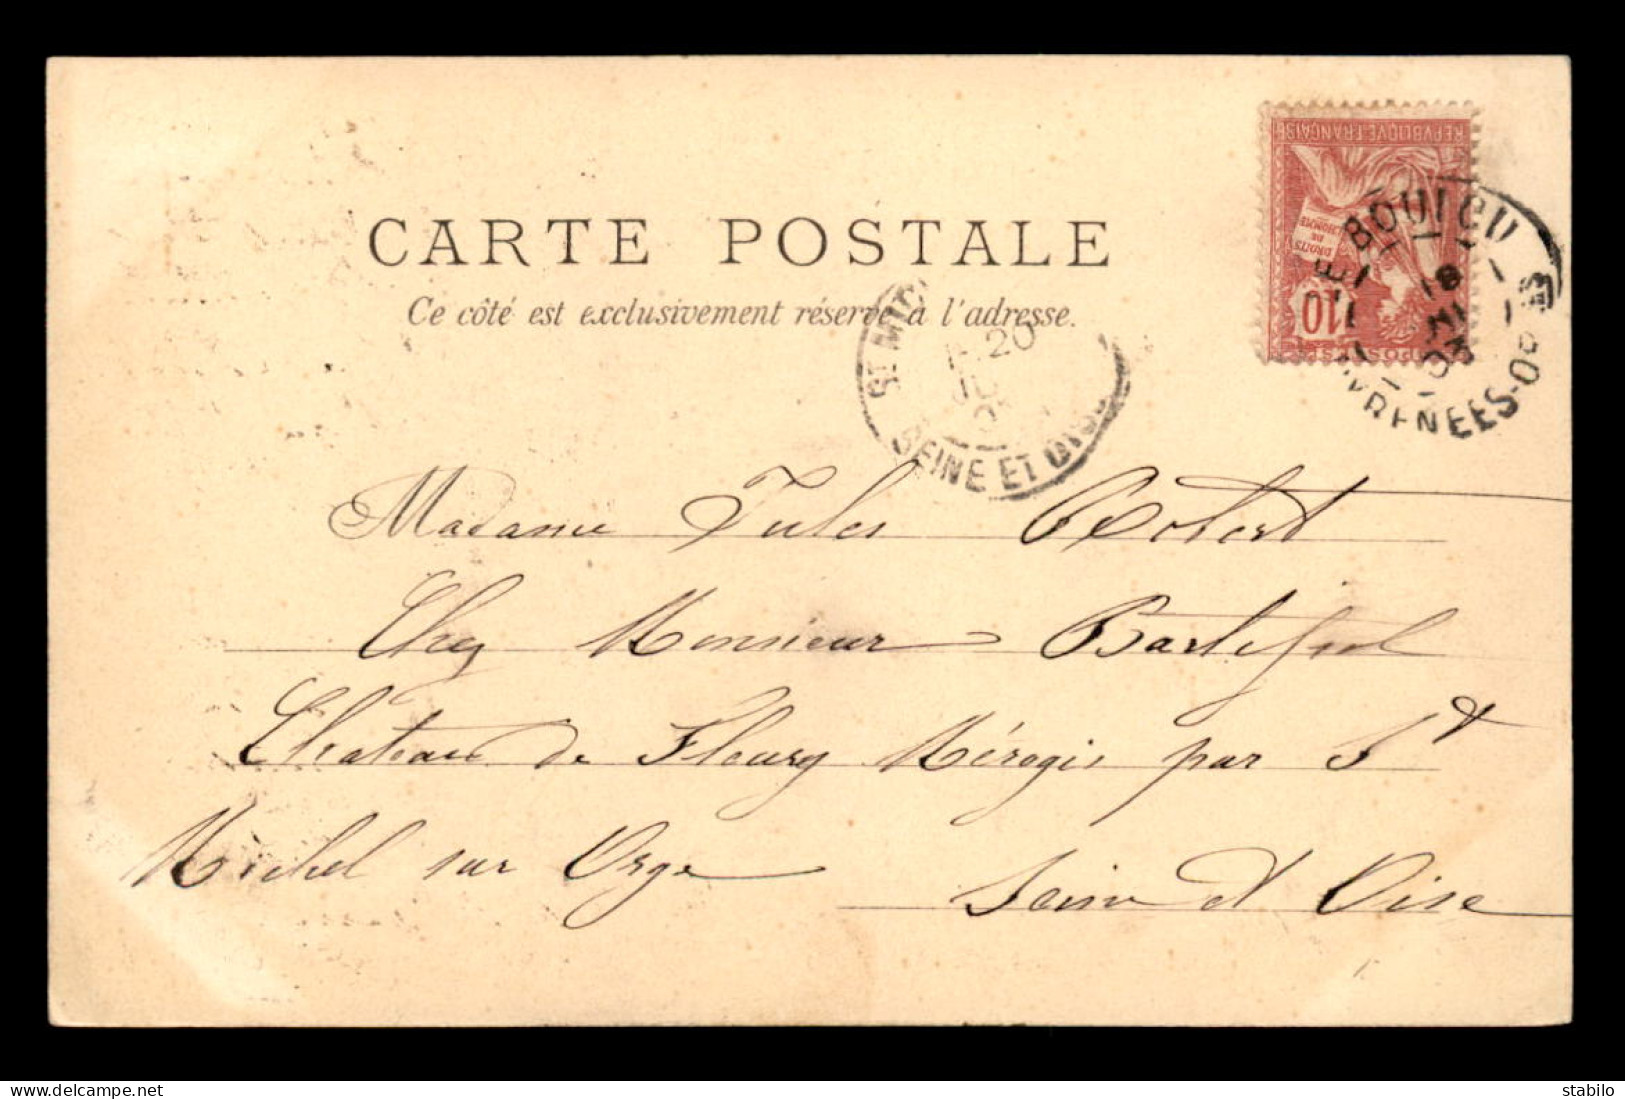 REPVBLIQVE FRANÇAISE
DROITS
DE
L'HOMME
10
POSTES
LE BOULOU
18
JUIN
03
PYRENEES-OR
CARTE POSTALE
Ce côté est exclusivement réservé à l'adresse.
ST MICH
20
SEINE ET OISE
Madame Jules Robert
Chez Monsieur
Chateau de Fleury Mérogis par St
Michel sur Orge
Seine et Oise
Delcampe.net
stabilo